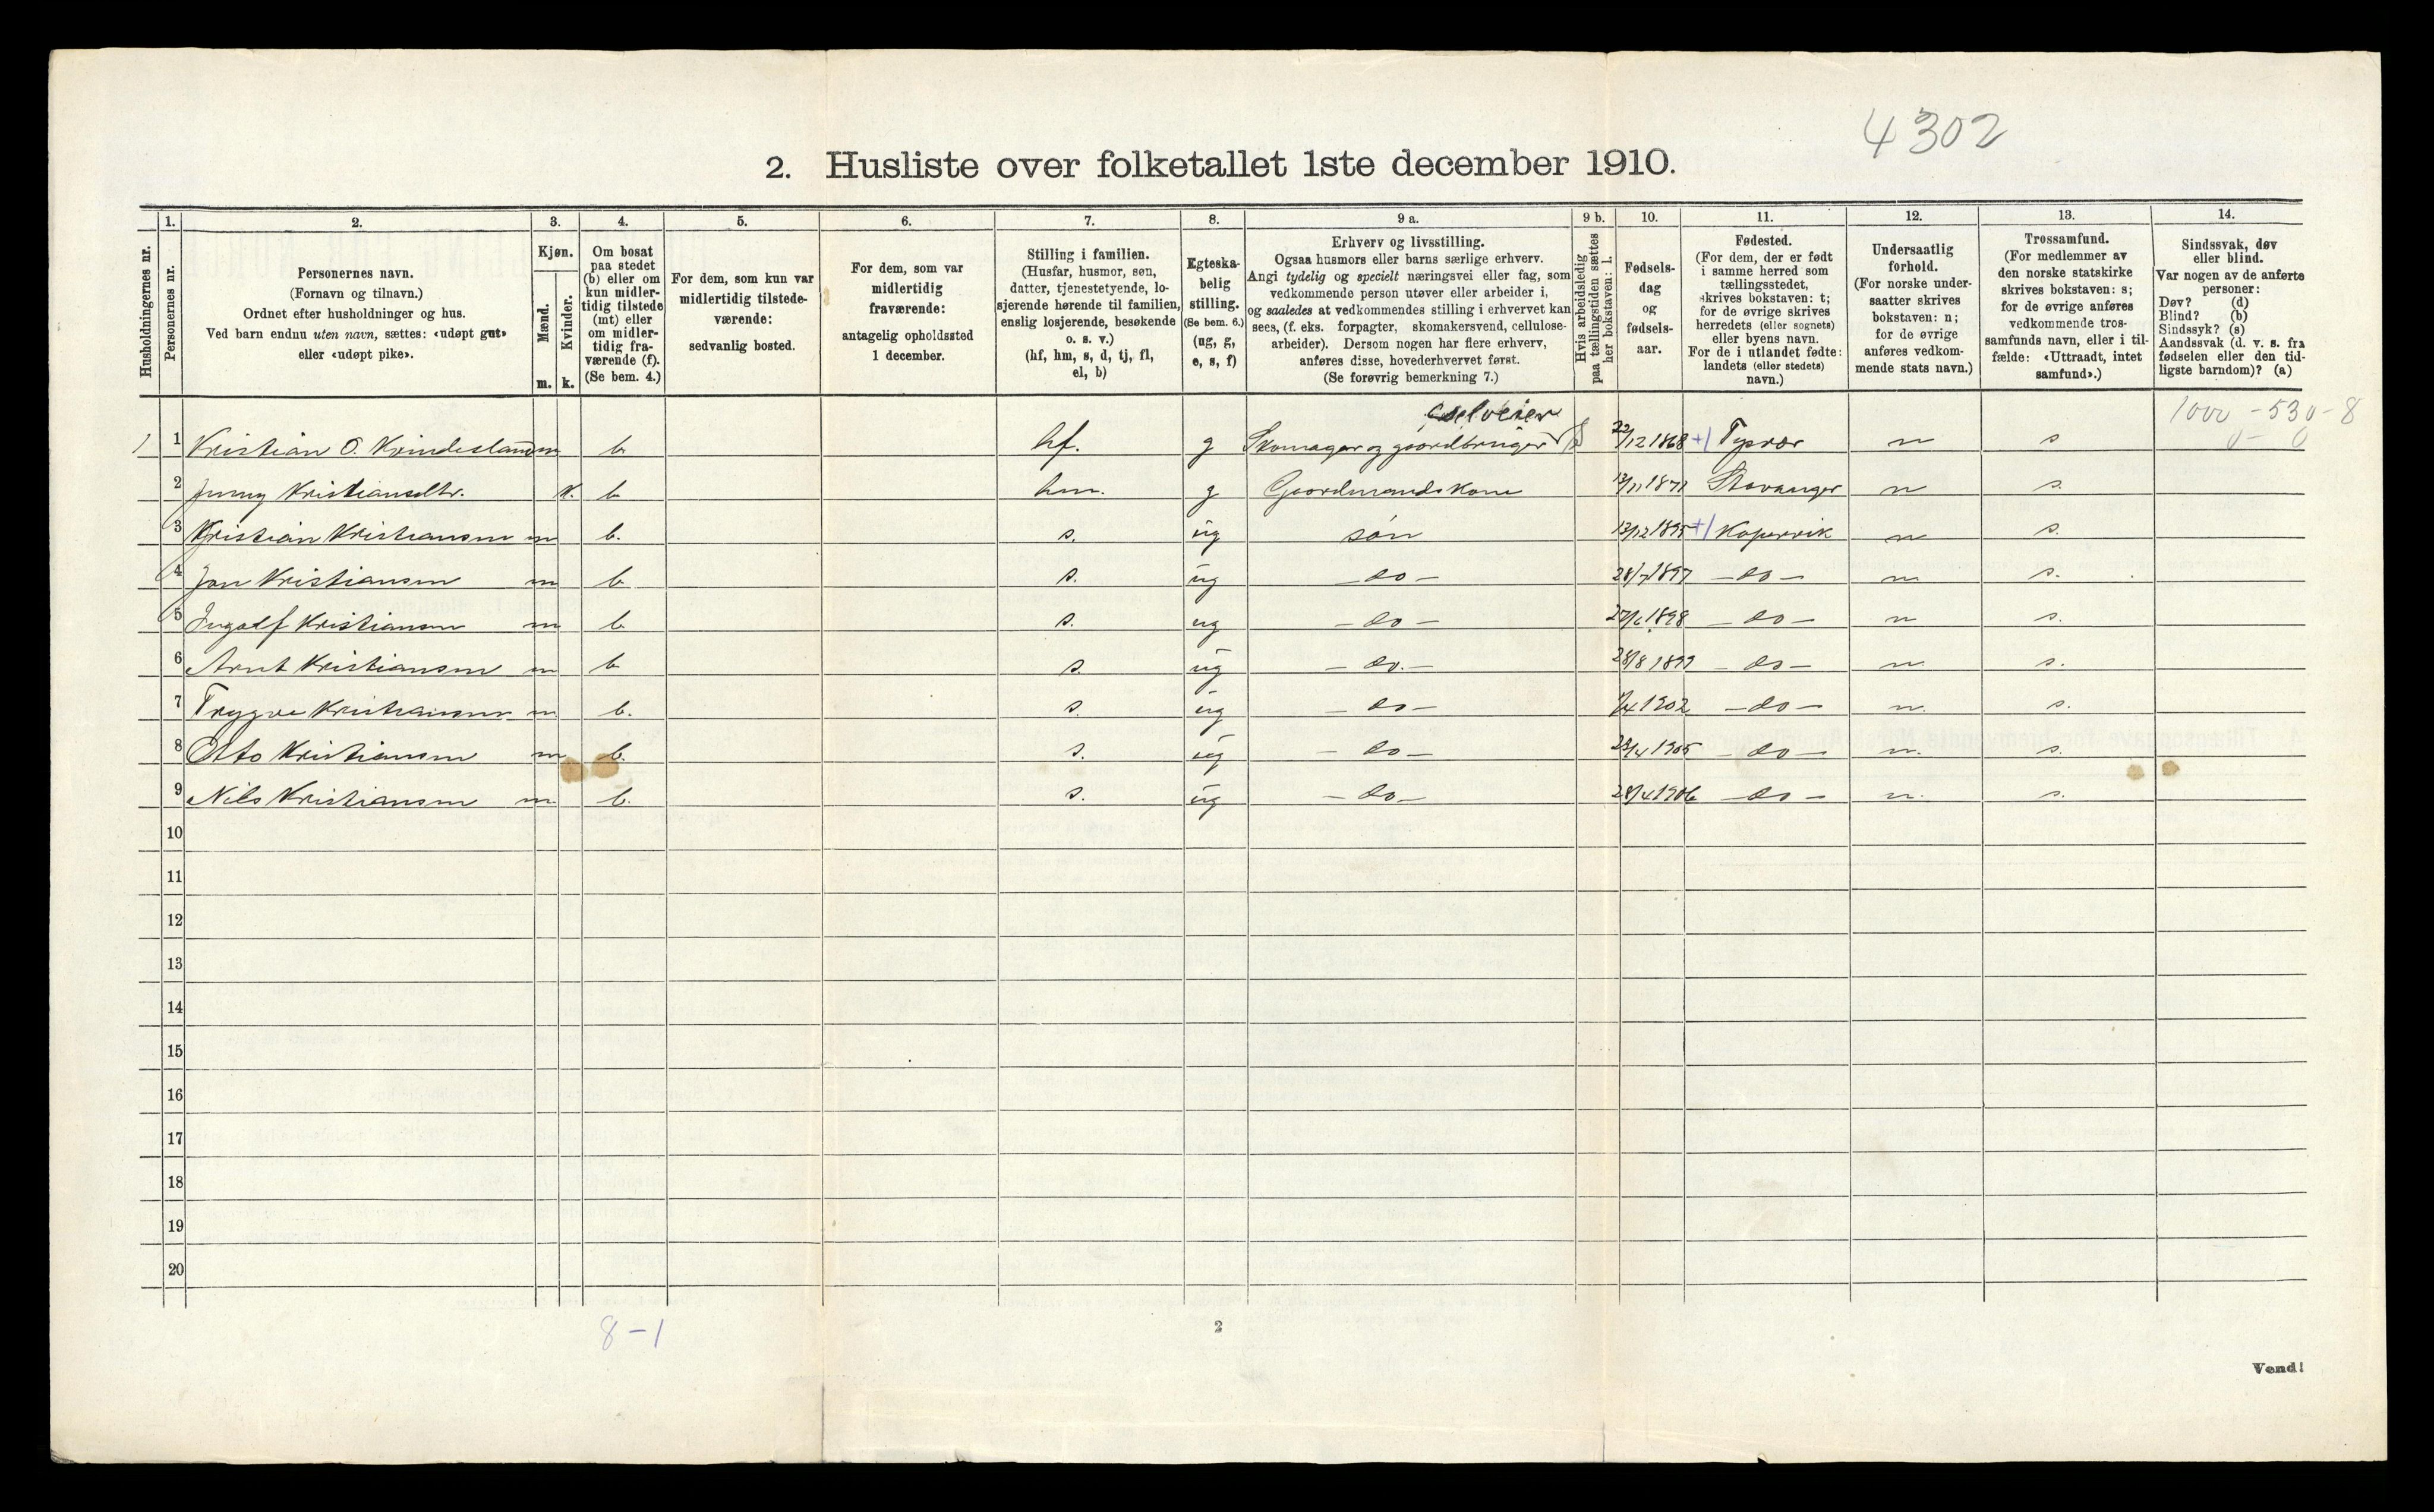 4302
2. Husliste over folketallet 1ste december 1910.
Husholdningernes nr.
1.
Personernes nr.
2.
Personernes navn.
(Fornavn og tilnavn.)
Ordnet efter husholdninger og hus.
Ved barn endnu uten navn, sættes: «udøpt gut»
eller «udøpt pike».
3.
Kjøn.
Mænd.
Kvinder.
m. k.
4.
Om bosat
paa stedet
(b) eller om
kun midler-
tidig tilstede
(mt) eller
om midler-
tidig fra-
værende (f).
(Se bem. 4.)
5.
For dem, som kun var
midlertidig tilstede-
værende:
sedvanlig bosted.
6.
For dem, som var
midlertidig
fraværende:
antagelig opholdssted
1 december.
7.
Stilling i familien.
(Husfar, husmor, søn,
datter, tjenestetyende, lo-
sjerende hørende til familien,
enslig losjerende, besøkende
o. s. v.)
(hf, hm, s, d, tj, fl,
el, b)
8.
Egteska-
belig
stilling.
(Se bem. 6.)
(ug, g,
e, s, f)
9 a.
Erhverv og livsstilling.
Ogsaa husmors eller barns særlige erhverv.
Angi tydelig og specielt næringsvei eller fag, som
vedkommende person utøver eller arbeider i,
og saaledes at vedkommendes stilling i erhvervet kan
sees, (f. eks. forpagter, skomakersvend, cellulose-
arbeider). Dersom nogen har flere erhverv,
anføres disse, hovederhvervet først.
(Se forøvrig bemerkning 7.)
9 b.
Hvis arbeidsledig
paa tællingstiden sættes
her bokstaven: l.
10.
Fødsels-
dag
og
fødsels-
aar.
11.
Fødested.
(For dem, der er født
i samme herred som
tællingsstedet,
skrives bokstaven: t;
for de øvrige skrives
herredets (eller sognets)
eller byens navn.
For de i utlandet fødte:
landets (eller stedets)
navn.)
12.
Undersaatlig
forhold.
(For norske under-
saatter skrives
bokstaven: n;
for de øvrige
anføres vedkom-
mende stats navn.)
13.
Trossamfund.
(For medlemmer av
den norske statskirke
skrives bokstaven: s;
for de øvrige anføres
vedkommende tros-
samfunds navn, eller i til-
fælde: «Uttraadt, intet
samfund».)
14.
Sindssvak, døv
eller blind.
Var nogen av de anførte
personer:
Døv? (d)
Blind? (b)
Sindssyk? (s)
Aandssvak (d. v. s. fra
fødselen eller den tid-
ligste barndom)? (a)
selveier 1000 - 530 - 8
1 1 Kristian O. Kvindesland m b. hf. g Skomager og gaardbruger 22/12 1868 +1 Tysvær n s 0 - 0
2 Jenny Kristiansdtr. k. b hm. g Gaardmandskone 13/11 1871 Stavanger n s.
3 Kristian Kristiansen m b. s. ug søn 13/12 1895 +1 Kopervik n s.
4 Jon Kristiansen m b. s. ug - do - 28/7 1897 - do - n s.
5 Ingolf Kristiansen m b. s. ug - do - 1898 - do - n s.
6 Arnt Kristiansen m b s. ug - do. - 28/8 1899 - do - n. s.
7 Trygve Kristiansen m. b. s. ug - do - 1902 - do - n. s.
8 Otto Kristiansen m b. s. ug - do - 1905 - do - n. s.
9 Nils Kristiansen m. b. s. ug - do - 28/4 1906 - do - n. s.
10
11
12
13
14
15
16
17
18
19
20
8-1
2
Vend!